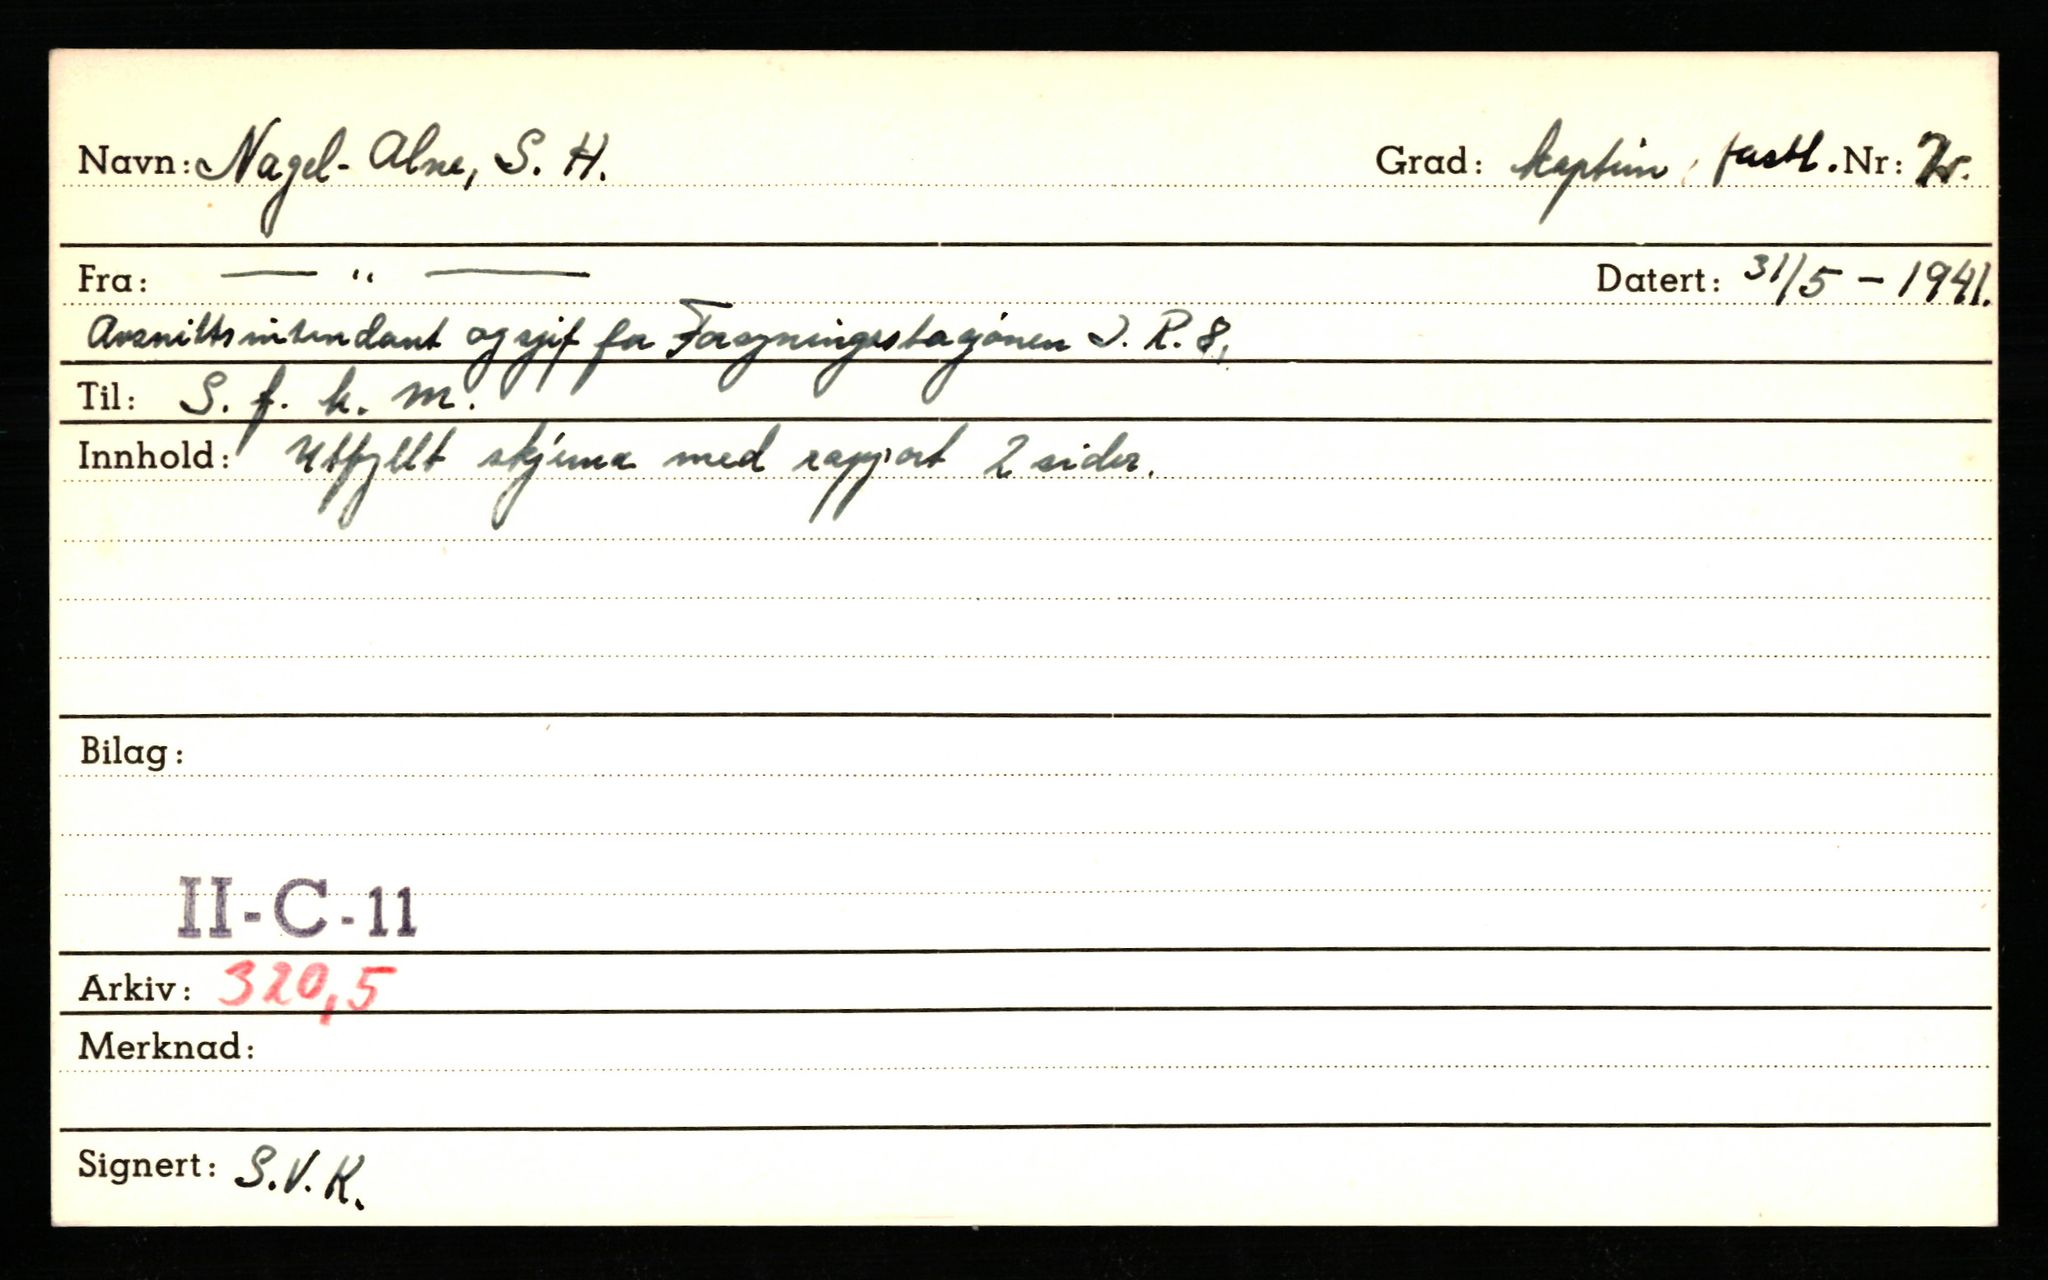 Navn: Nagel-Alne, S. H. Grad: kaptein, fastl. Nr:
Fra: — " — Datert: 31/5 - 1941.
Avsnittsintendant og sjef for Forsyningsstasjonen I. R. 8.
Til: S. f. k. m.
Innhold: Utfyllt skjema med rapport 2 sider.
Bilag:
II-C-11
Arkiv: 320,5
Merknad:
Signert: S.V.K.